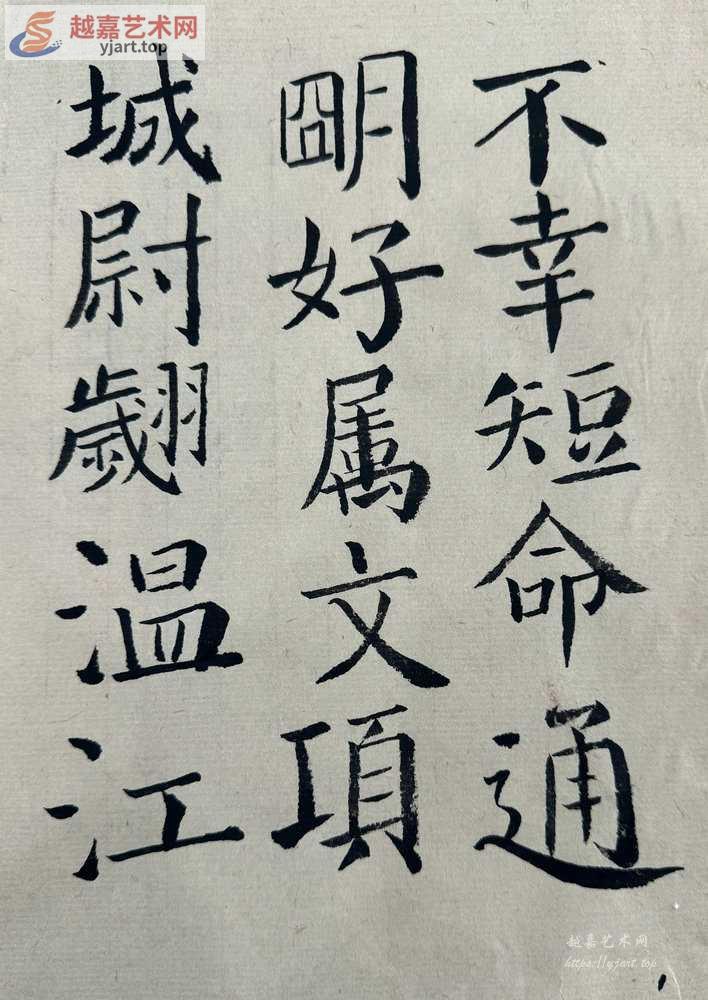 越嘉艺术网
yjart.top
不幸短命通
朙好属文項
城尉翽温江
越嘉艺术网
https://yjart.top